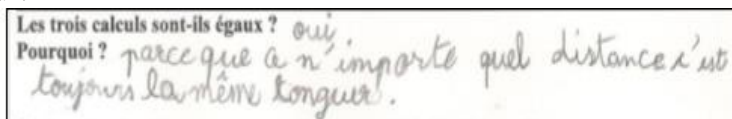 Les trois calculs sont-ils égaux ? oui.
Pourquoi ? parce que a n'importe quel distance c'est
toujours la même longuer.